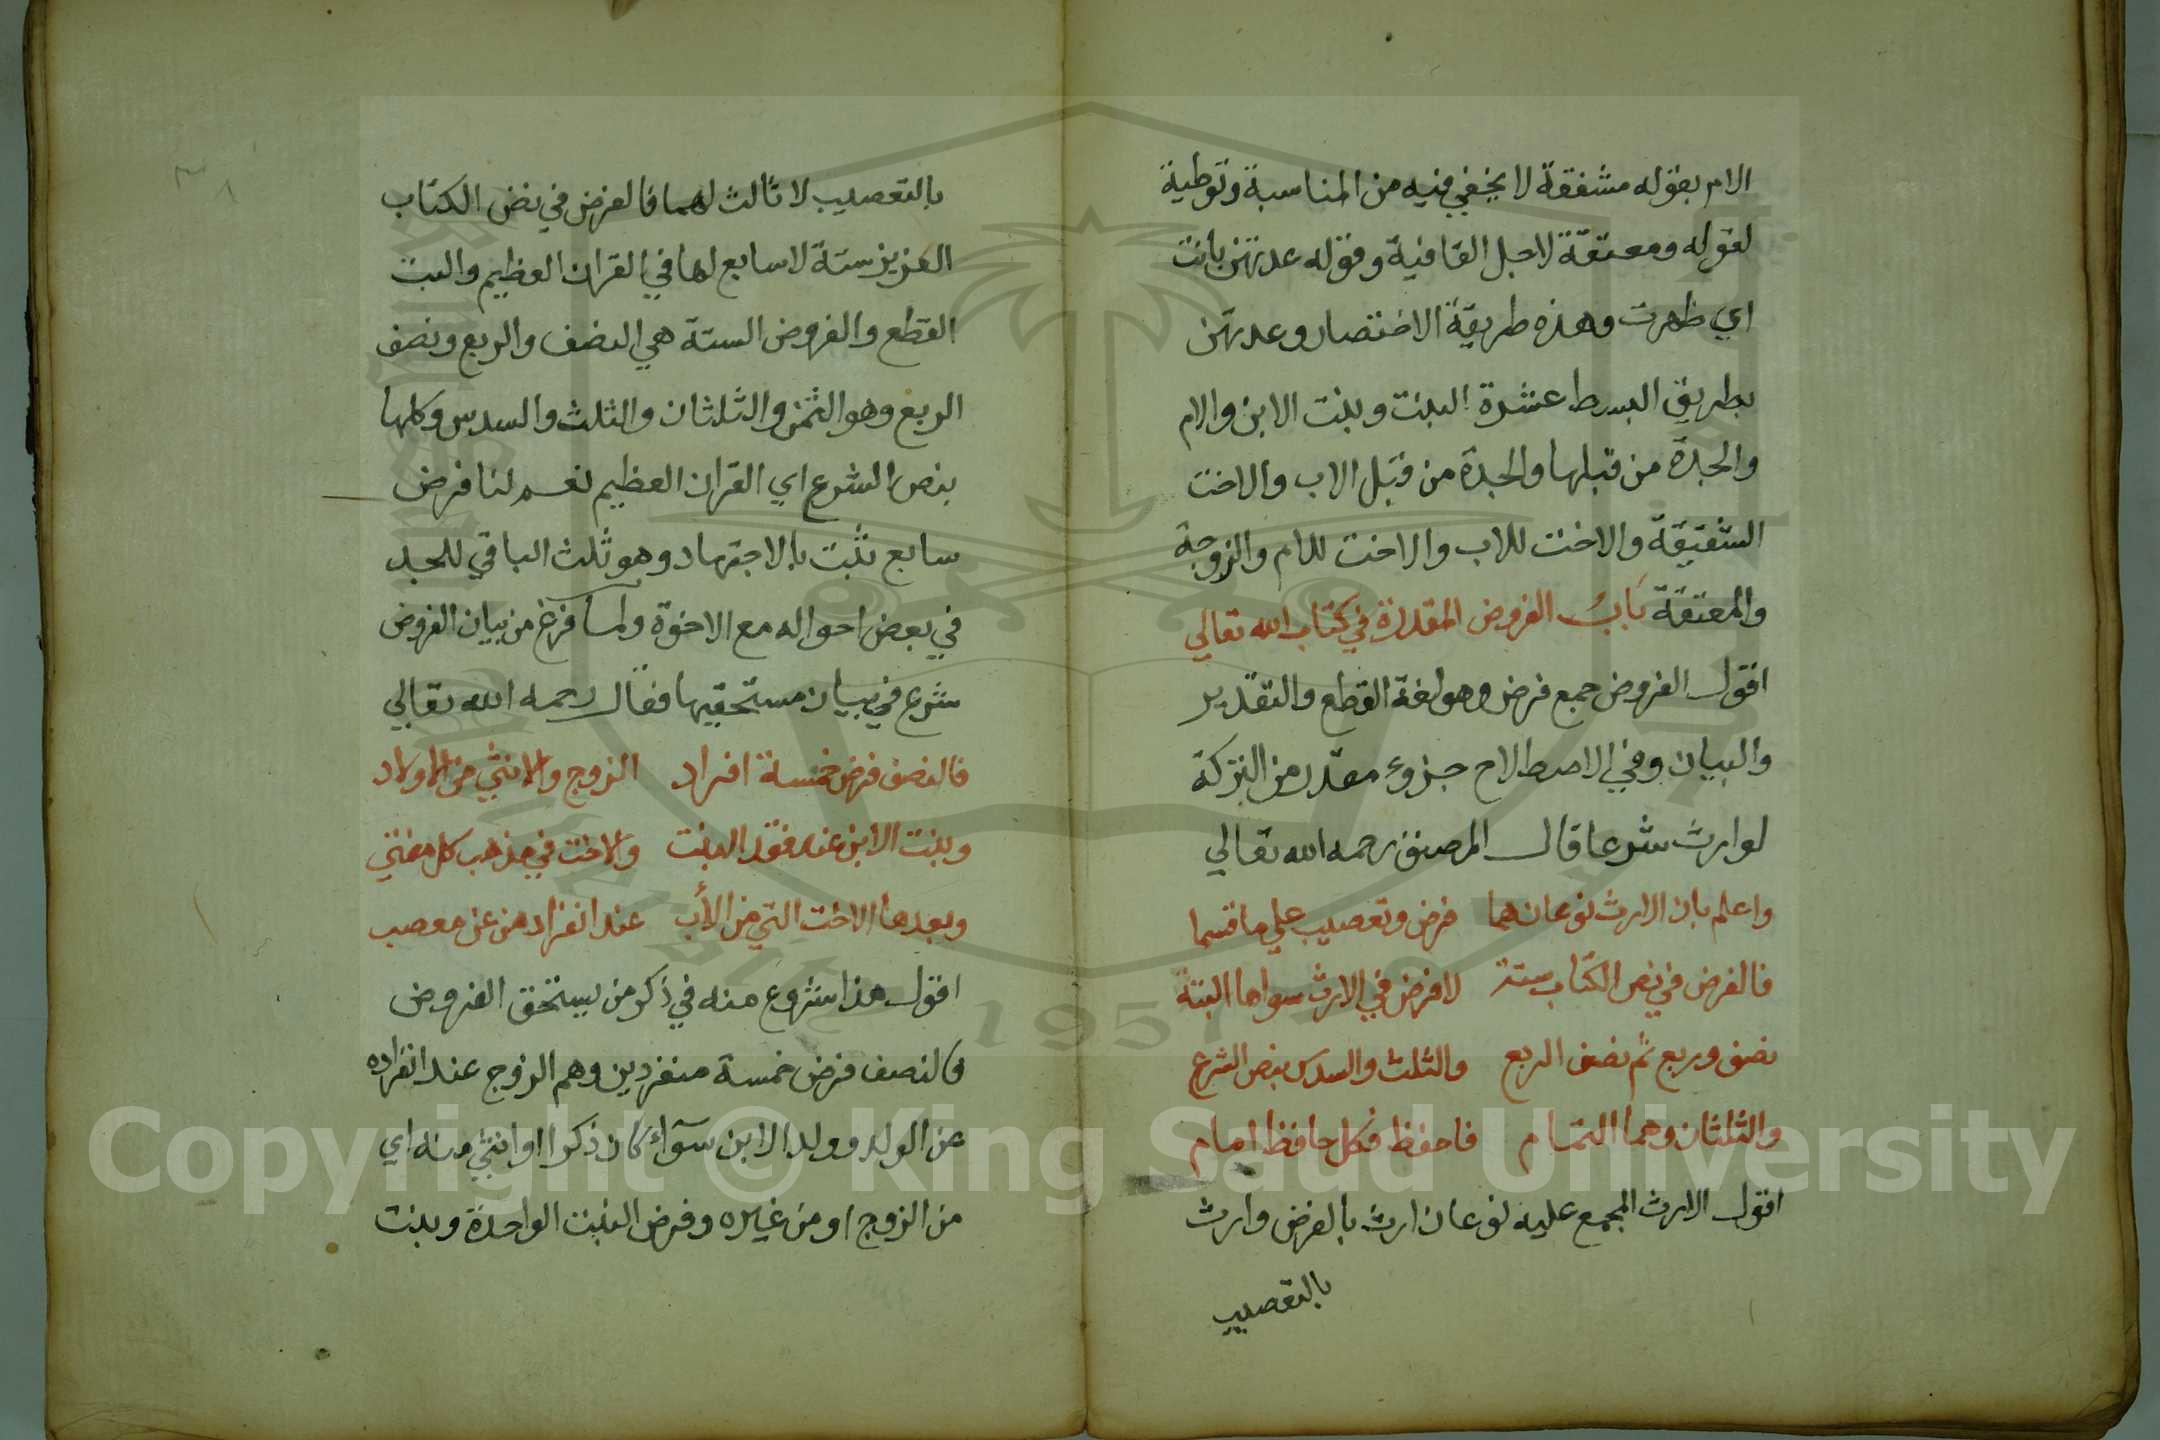 الام بقوله مشفقة لا يخفي فيه من المناسبة وتوطية
لقوله ومعتقة لاجل القافية وقوله عدتهن بانت
اي ظهرت وهذه طريقة الاختصار وعدتهن
بطريق البسط عشرة البنت وبنت الابن والام
والجدة من قبلها والجدة من قبل الاب والاخت
الشقيقة والاخت للاب والاخت للام والزوجة
والمعتقة باب الفروض المقدرة في كتاب الله تعالي
اقول الفروض جمع فرض وهو لغة القطع والتقدير
والبيان وفي الاصطلاح جزوء مقدر من التركة
لوارث شرعا قال المصنف رحمه الله تعالي
واعلم بان الارث نوعان هما فرض وتعصيب علي ما قسما
فالفرض في نص الكتاب ستة لا فرض في الارث سواها البتة
نصف وربع ثم نصف الربع والثلث والسدس بنص الشرع
والثلثان وهما التمام فاحفظ فكل حافظ امام
اقول الارث المجمع عليه نوعان ارث بالفرض وارث
بالتعصيب
بالتعصيب لا ثالث لهما فالفرض في نص الكتاب
العزيز ستة لا سابع لها في القران العظيم والبت
القطع والفروض الستة هي النصف والربع ونصف
الربع وهو الثمن والثلثان والثلث والسدس وكلها
بنص الشرع اي القران العظيم نعم لنا فرض
سابع ثبت بالاجتهاد وهو ثلث الباقي للجد
في بعض احواله مع الاخوة ولما فرغ من بيان الفروض
شرع في بيان مستحقيها فقال رحمه الله تعالي
فالنصف فرض خمسة افراد الزوج والانثي من الاولاد
وبنت الابن عند فقد البنت والاخت في مذهب كل مفتي
وبعدها الاخت التي من الأب عند انفرادهن عن معصب
اقول هذا شروع منه في ذكر من يستحق الفروض
فالنصف فرض خمسة منفردين وهم الزوج عند انفراده
عن الولد وولد الابن سوآء كان ذكرا او انثي منه اي
من الزوج او من غيره وفرض البنت الواحدة وبنت
٣٨
1957
Copyright © King Saud University